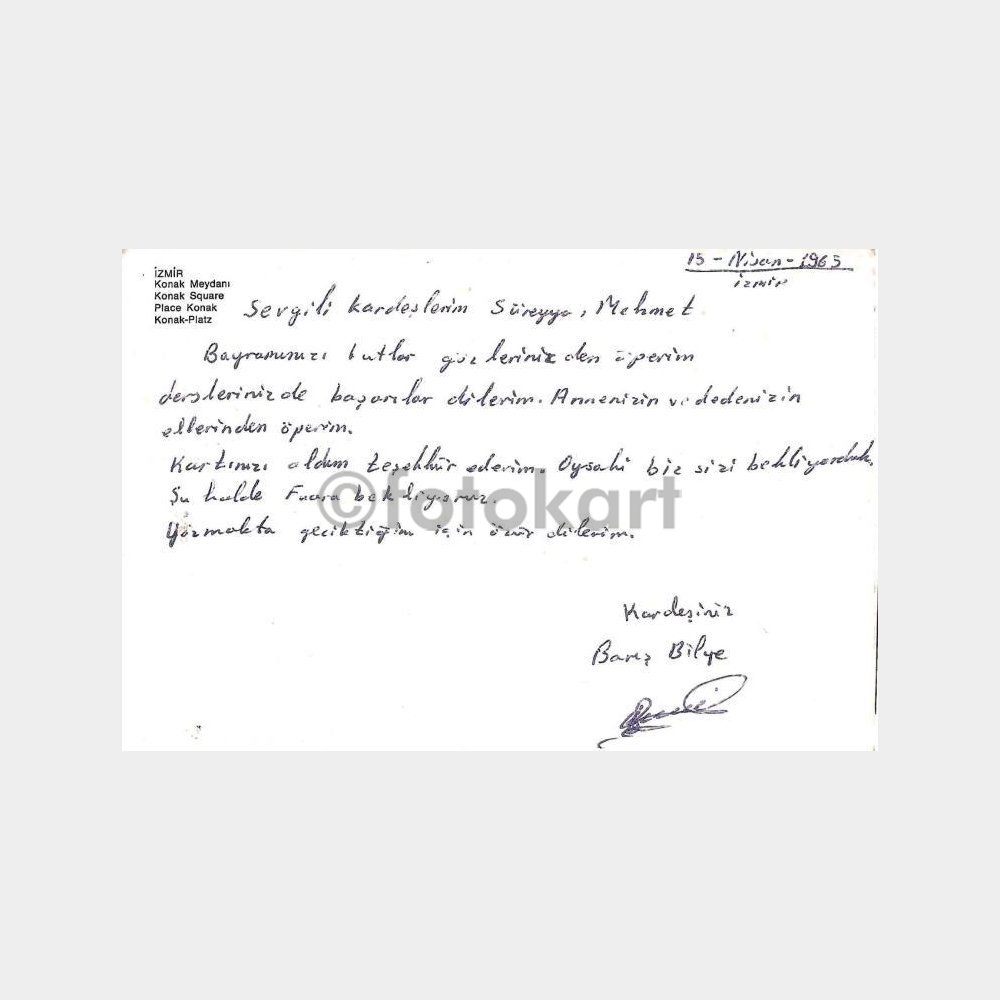 15 - Nisan - 1965
İzmir
İZMİR
Konak Meydanı
Konak Square
Place Konak
Konak-Platz
Sevgili kardeşlerim Süreyya, Mehmet
Bayramınızı kutlar gözlerinizden öperim
derslerinizde başarılar dilerim. Annenizin ve dedenizin
ellerinden öperim.
Kartınızı aldım teşekkür ederim. Oysaki biz sizi bekliyorduk.
Şu halde Fuara bekliyoruz.
Yazmakta geciktiğim için özür dilerim.
©fotokart
Kardeşiniz
Barış Bilye